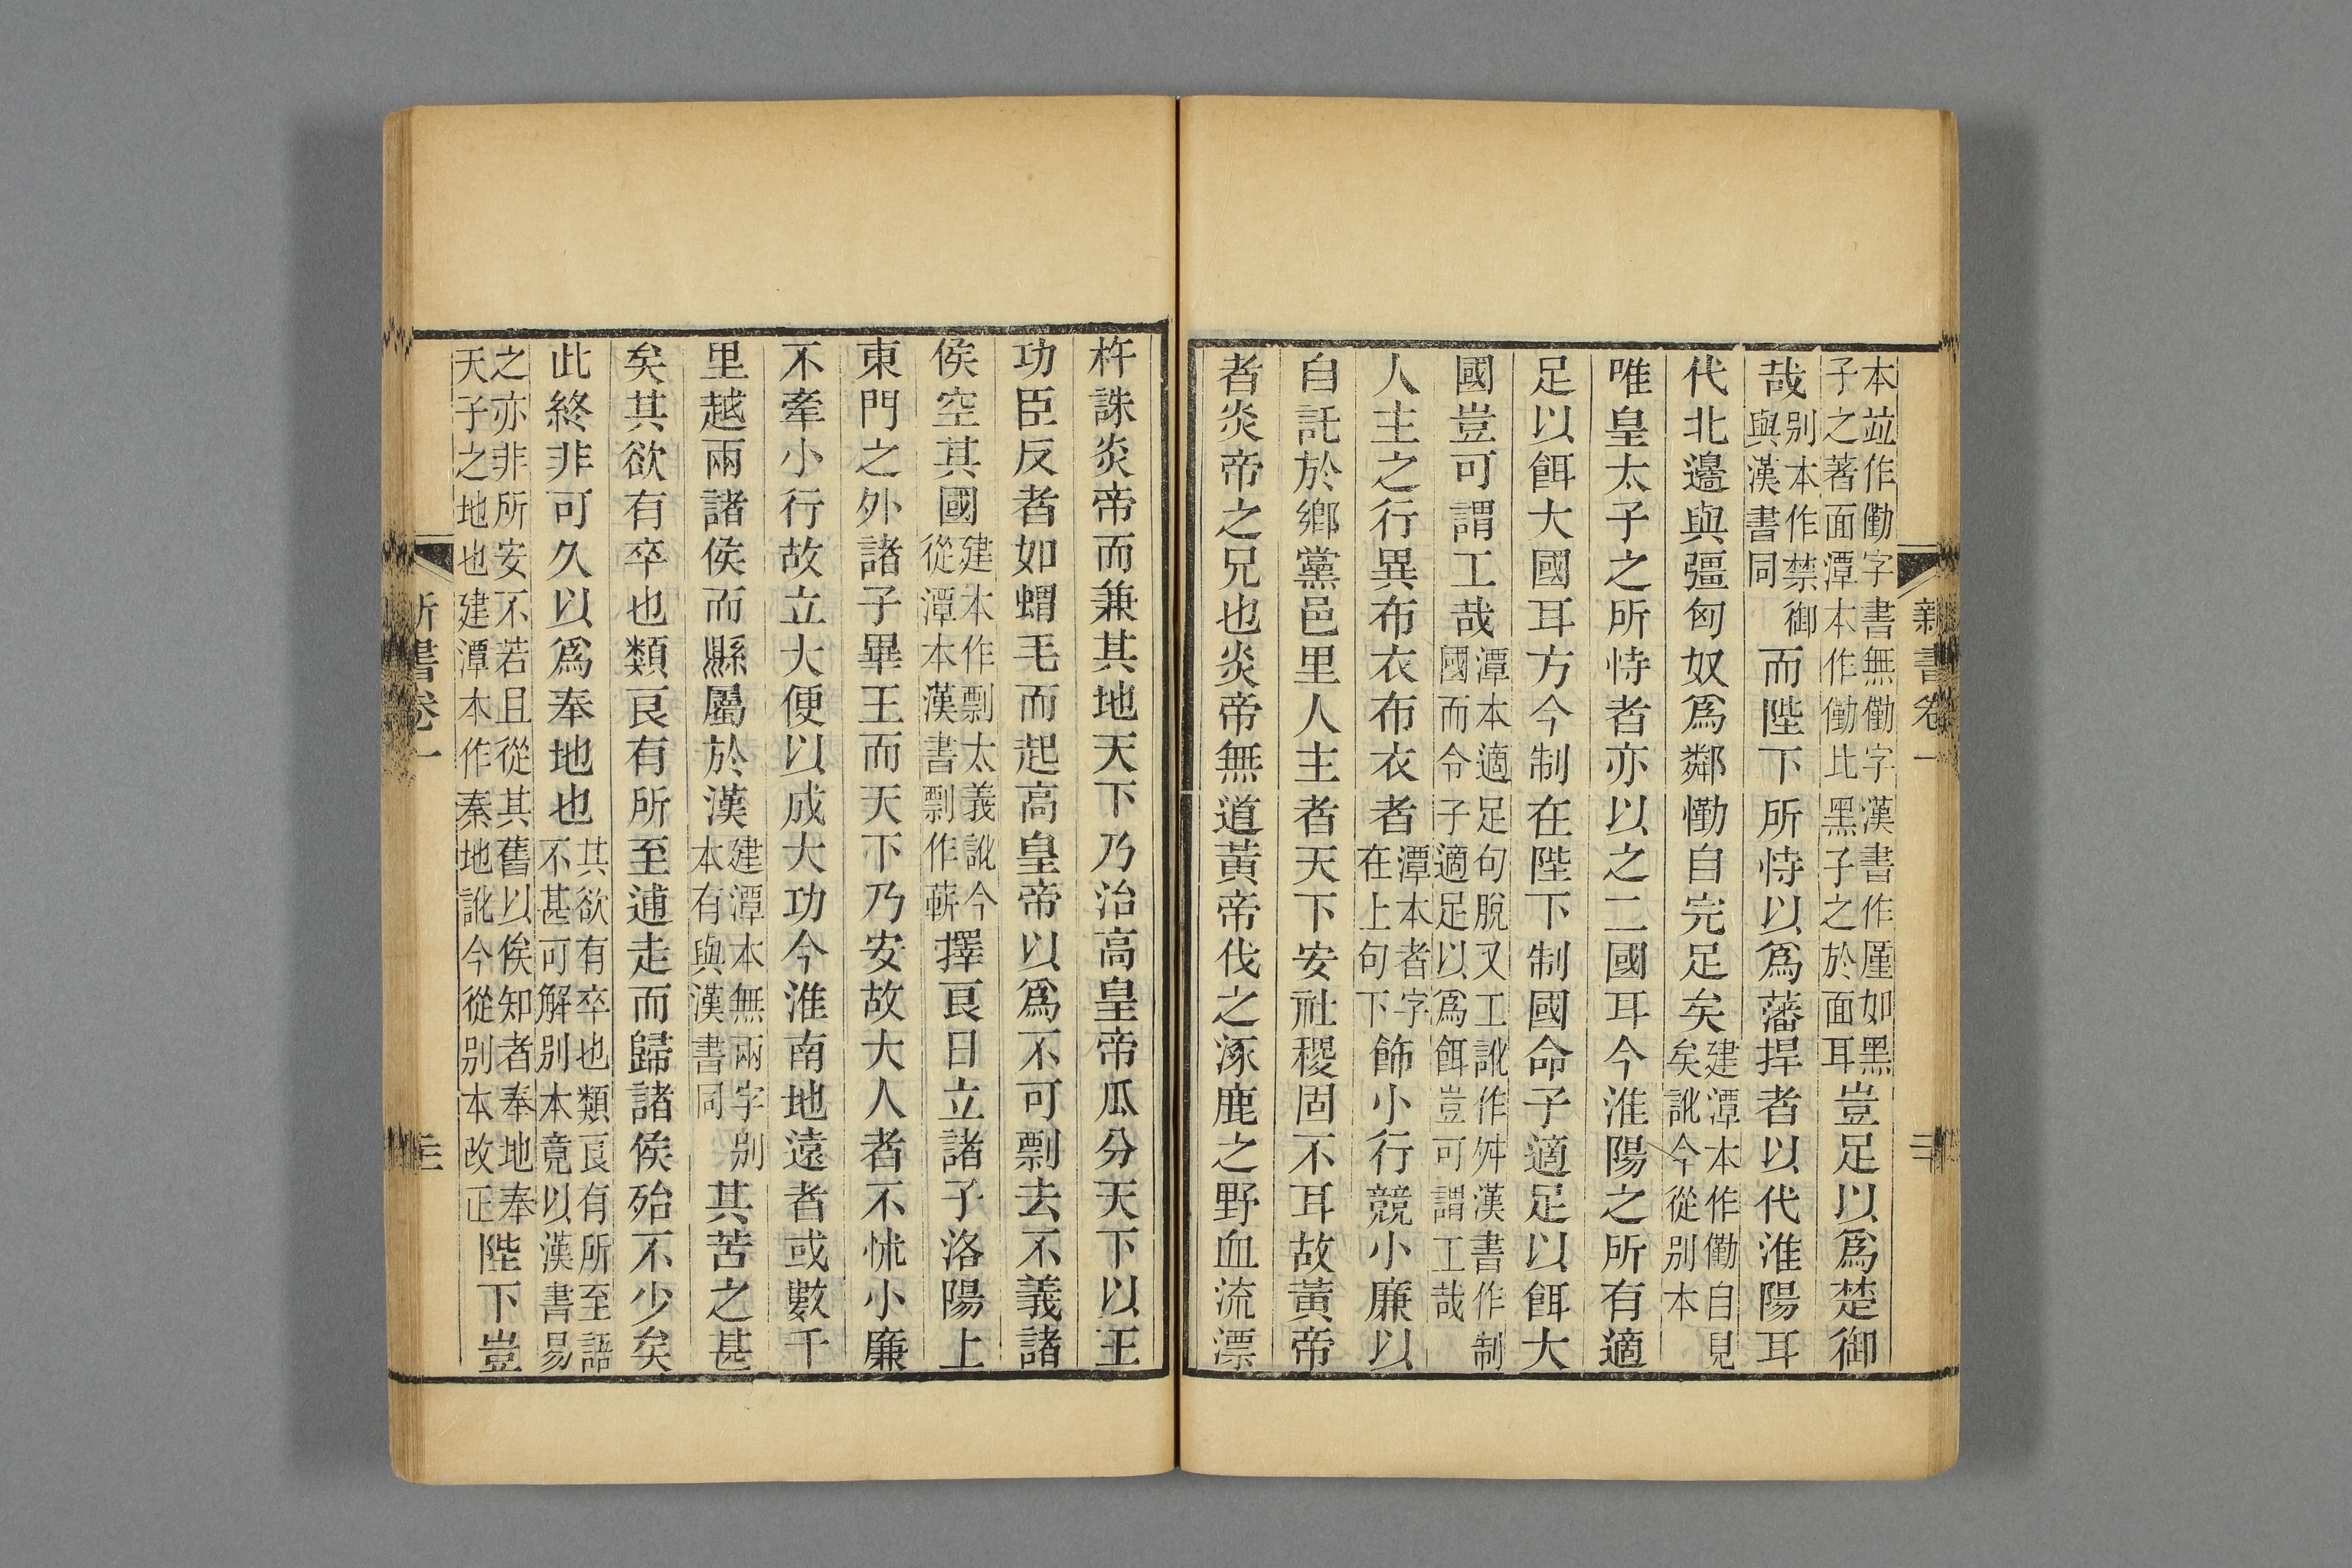 新書卷一
二
本竝作懄字書無懄字漢書作廑如黑
子之著面潭本作慟比黑子之於面耳
豈足以爲楚御
哉
別本作禁御
與漢書同
而陛下所恃以爲藩捍者以代淮陽耳
代北邊與彊匈奴爲鄰懄自完足矣
建潭本作懄自見
矣訛今從別本
唯皇太子之所恃者亦以之二國耳今淮陽之所有適
足以餌大國耳方今制在陛下制國命子適足以餌大
國豈可謂工哉
潭本適足句脫又工訛作舛漢書作制
國而令子適足以爲餌豈可謂工哉
人主之行異布衣布衣者
潭本者字
在上句下
飾小行競小廉以
自託於鄉黨邑里人主者天下安社稷固不耳故黃帝
者炎帝之兄也炎帝無道黃帝伐之涿鹿之野血流漂
杵誅炎帝而兼其地天下乃治高皇帝瓜分天下以王
功臣反者如蝟毛而起高皇帝以爲不可剽去不義諸
侯空其國
建本作剽太義訛今
從潭本漢書剽作蘄
擇良日立諸子洛陽上
東門之外諸子畢王而天下乃安故大人者不怵小廉
不牽小行故立大便以成大功今淮南地遠者或數千
里越兩諸侯而縣屬於漢
建潭本無兩字別
本有與漢書同
其苦之甚
矣其欲有卒也類良有所至逋走而歸諸侯殆不少矣
此終非可久以爲奉地也
其欲有卒也類良有所至語
不甚可解別本竟以漢書易
之亦非所安不若且從其舊以俟知者奉地奉
天子之地也建潭本作秦地訛今從別本改正
陛下豈
新書卷一
三